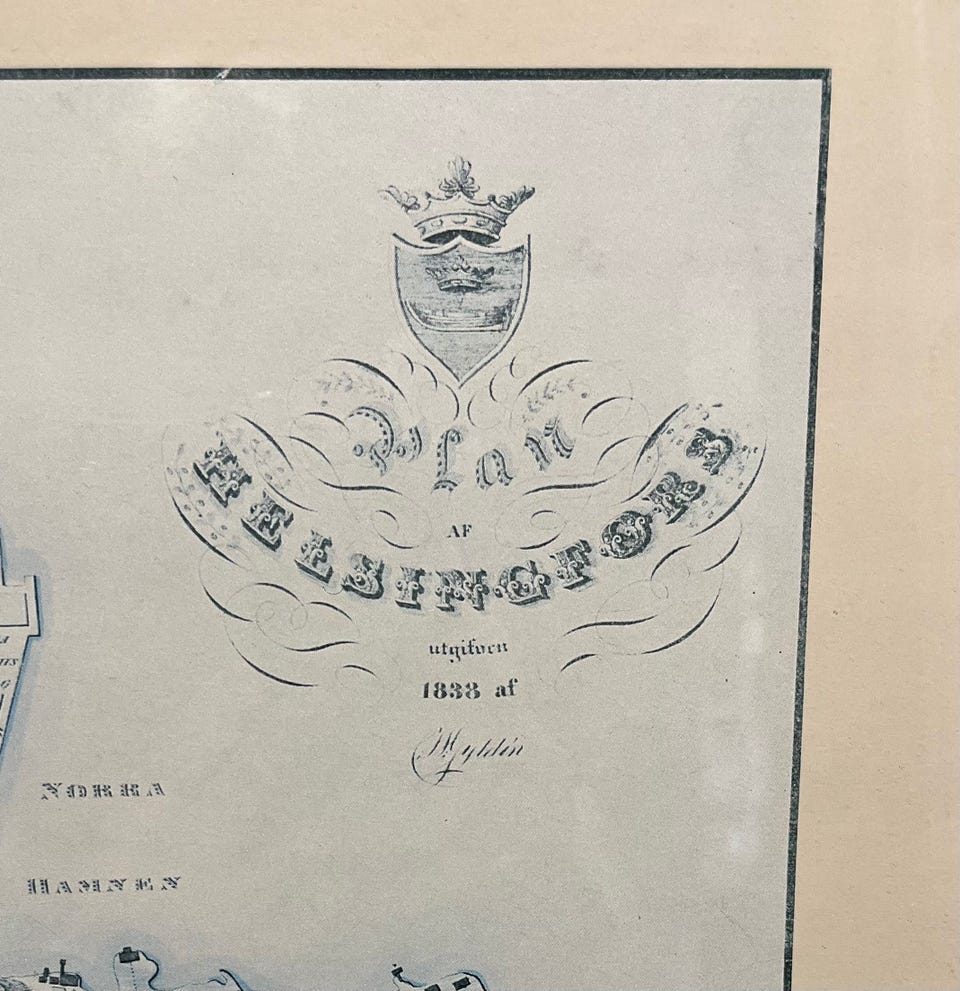 Plan
AF
HELSINGFORS
utgifven
1838 af
Gyldén
NORRA
HAMNEN